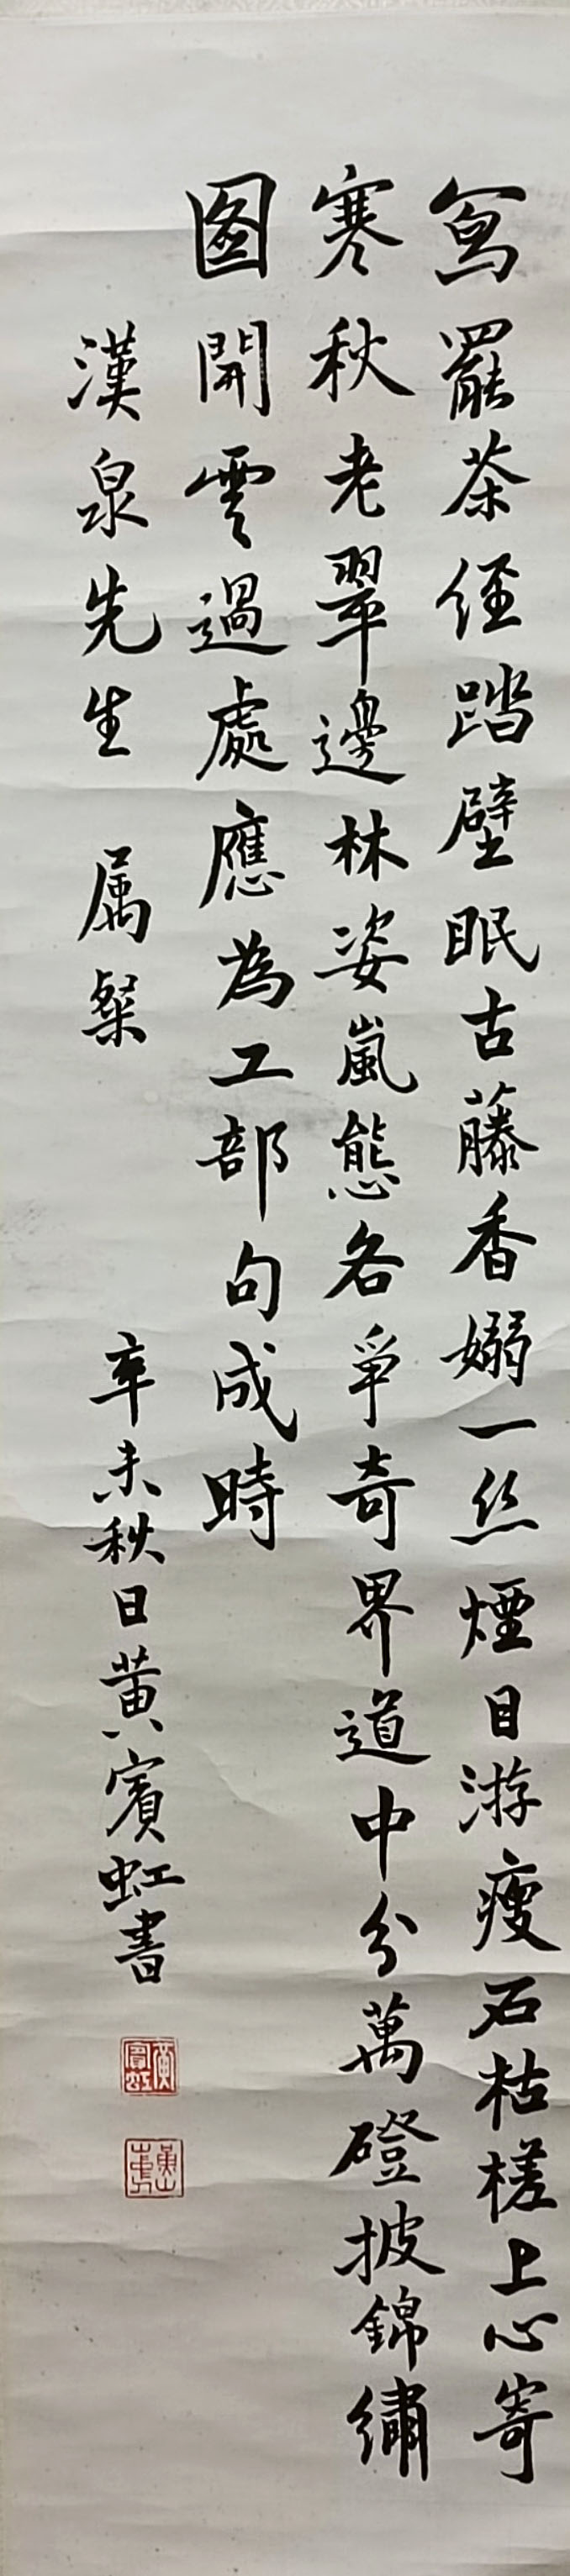 寫罷茶經踏壁眠古藤香嫋一丝煙目游瘦石枯槎上心寄
寒秋老翠邊林姿嵐態各爭奇界道中分萬磴披錦繡
图開雲過處應為工部句成時
漢泉先生 属粲
辛未秋日黄賓虹書
黄賓虹